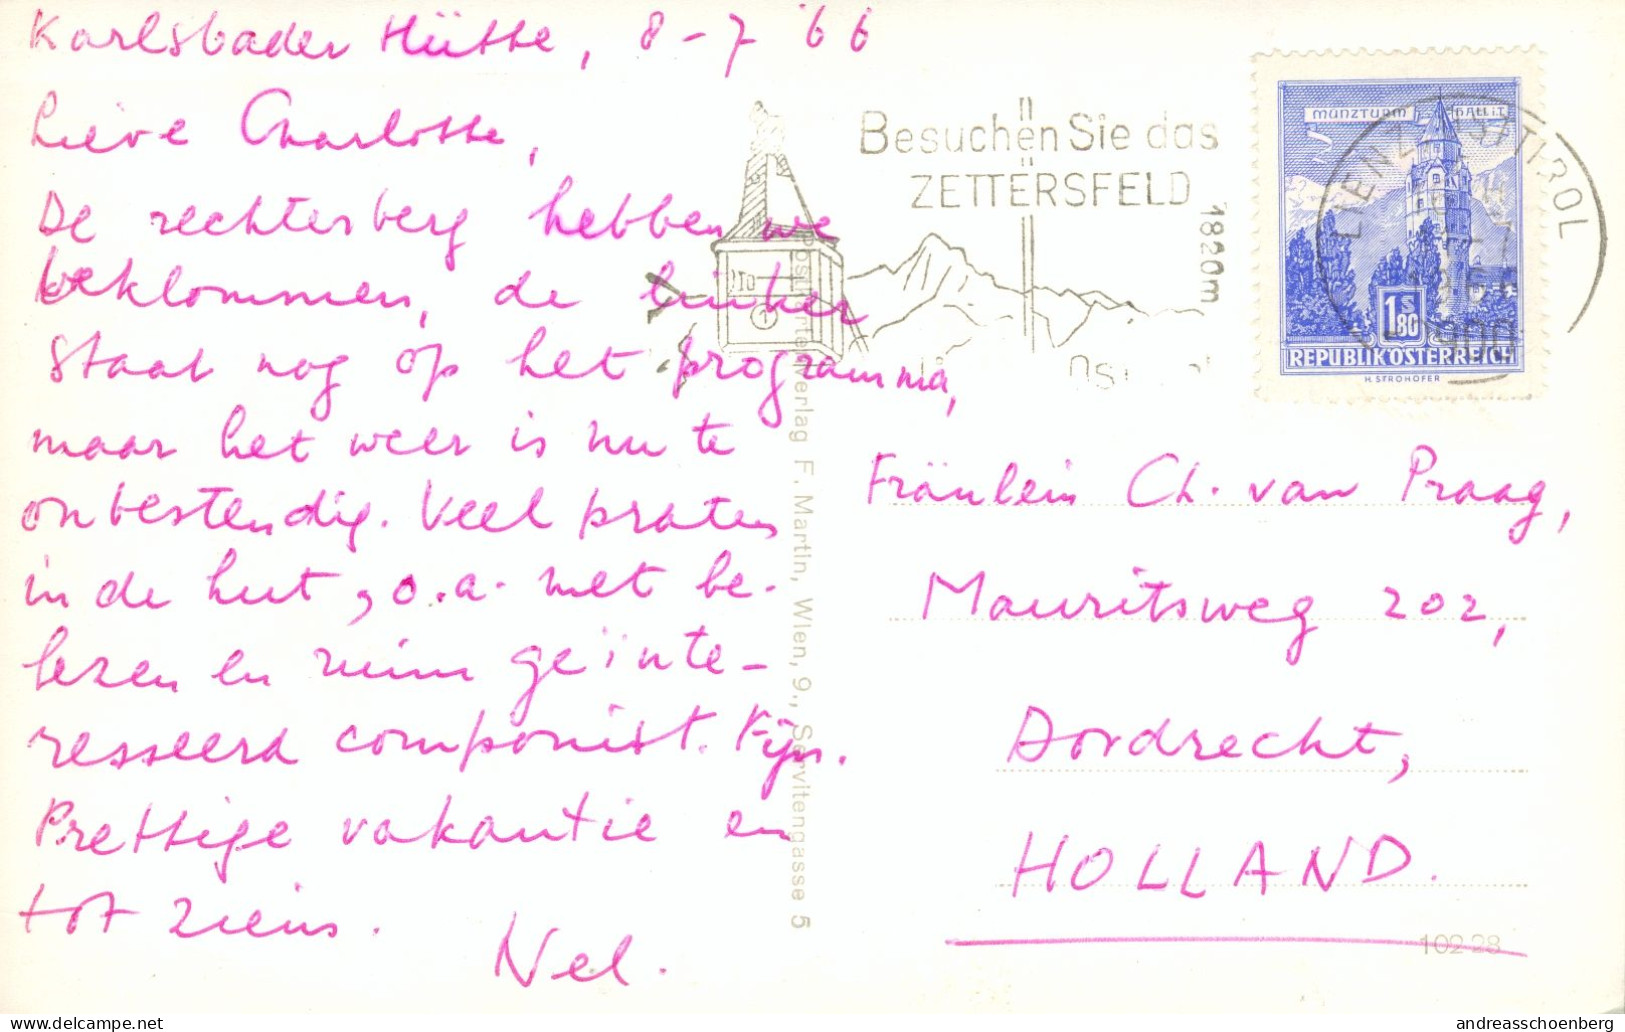 Karlsbader Hütte, 8-7 '66
Lieve Charlotte,
De rechterberg hebben we
beklommen, de linker
staat nog op het programma,
maar het weer is nu te
onbestendig. Veel praten
in de hut, o.a. met be-
lezen en ruim geïnte-
resseerd componist. Fijn.
Prettige vakantie en
tot ziens.
Nel.
Besuchen Sie das
ZETTERSFELD
1820m
MÜNZTURM HALL i.T.
LIENZ OSTTIROL
9900
1 S 80
REPUBLIK ÖSTERREICH
H. STROHOFER
Postkartenverlag F. Martin, Wien, 9., Servitengasse 5
Fräulein Ch. van Praag,
Mauritsweg 202,
Dordrecht,
HOLLAND.
102 28
www.delcampe.net
andreasschoenberg